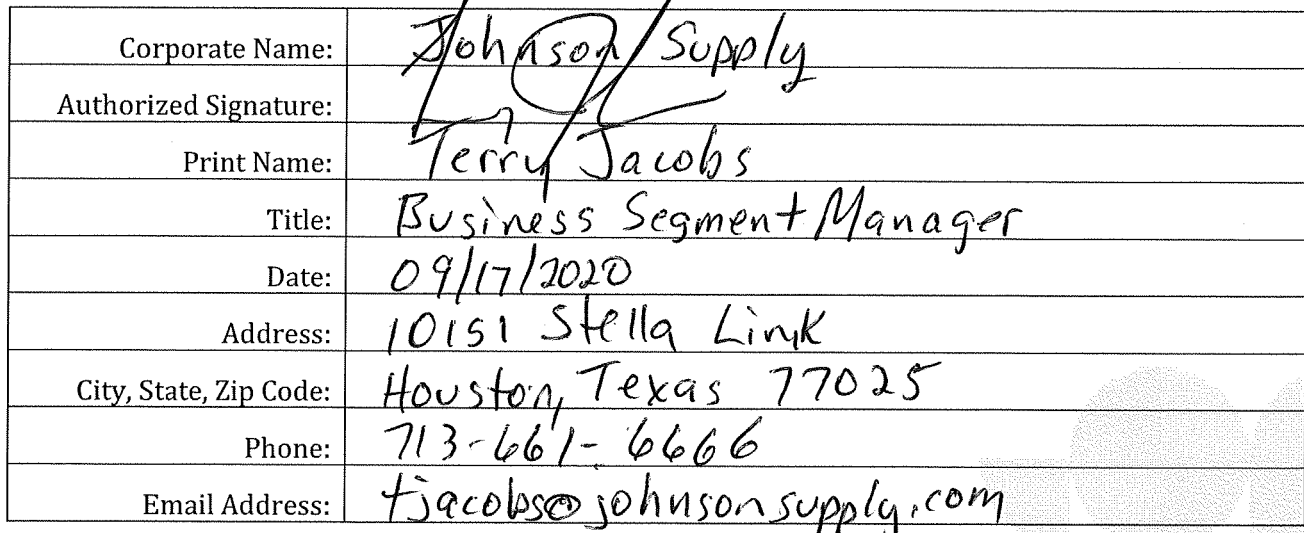 Corporate Name: Johnson Supply
Authorized Signature:
Print Name: Terry Jacobs
Title: Business Segment Manager
Date: 09/17/2020
Address: 10151 Stella Link
City, State, Zip Code: Houston, Texas 77025
Phone: 713-661-6666
Email Address: tjacobs@johnsonsupply.com